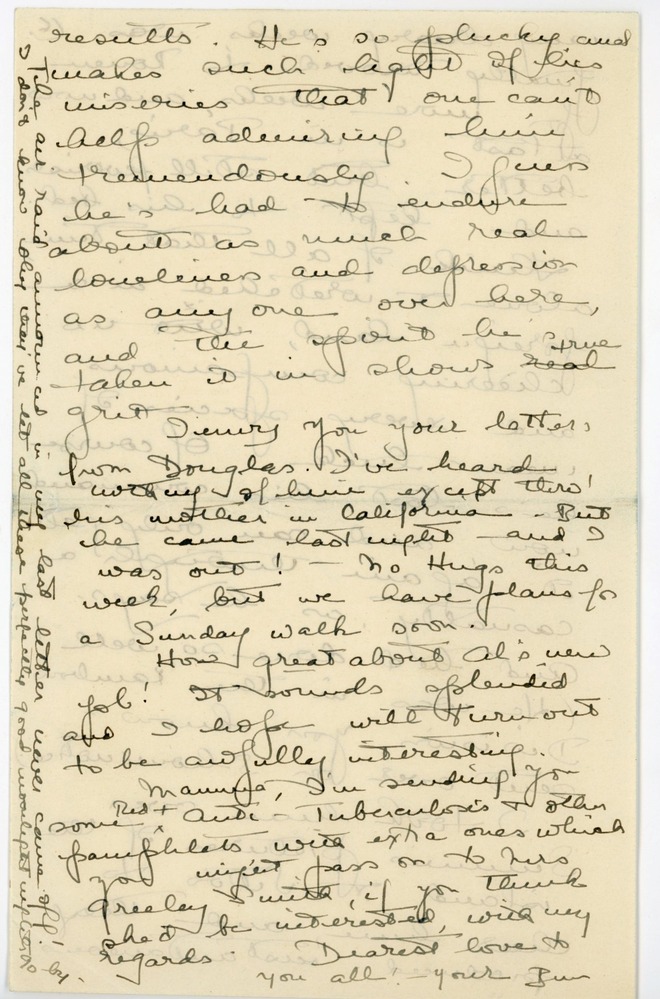 results. He's so plucky and
makes such light of his
miseries that one can't
help admiring him
tremendously. I guess
he's had to endure
about as much real
loneliness and depression
as any one over here,
and the spirit he's
taken it in shows real true
grit
I envy you your letters
from Douglas. I've heard
nothing of him except thro'
his mother in California - But
he came last night - and I
was out! - No Hugs this
week, but we have plans for
a Sunday walk soon.
How great about Al's new
job! It sounds splendid
and I hope will turn out
to be awfully interesting.
Mamma, I'm sending you
some Red + Anti-Tuberculosis + other
pamphlets with extra ones which
you might pass on to Mrs
Greeley Smith, if you think
she'd be interested, with my
regards. Dearest love to
you all! - your Bun
The air raid announced in my last letter never came off!
I don't know why they've let all these perfectly good moonlight nights go by.